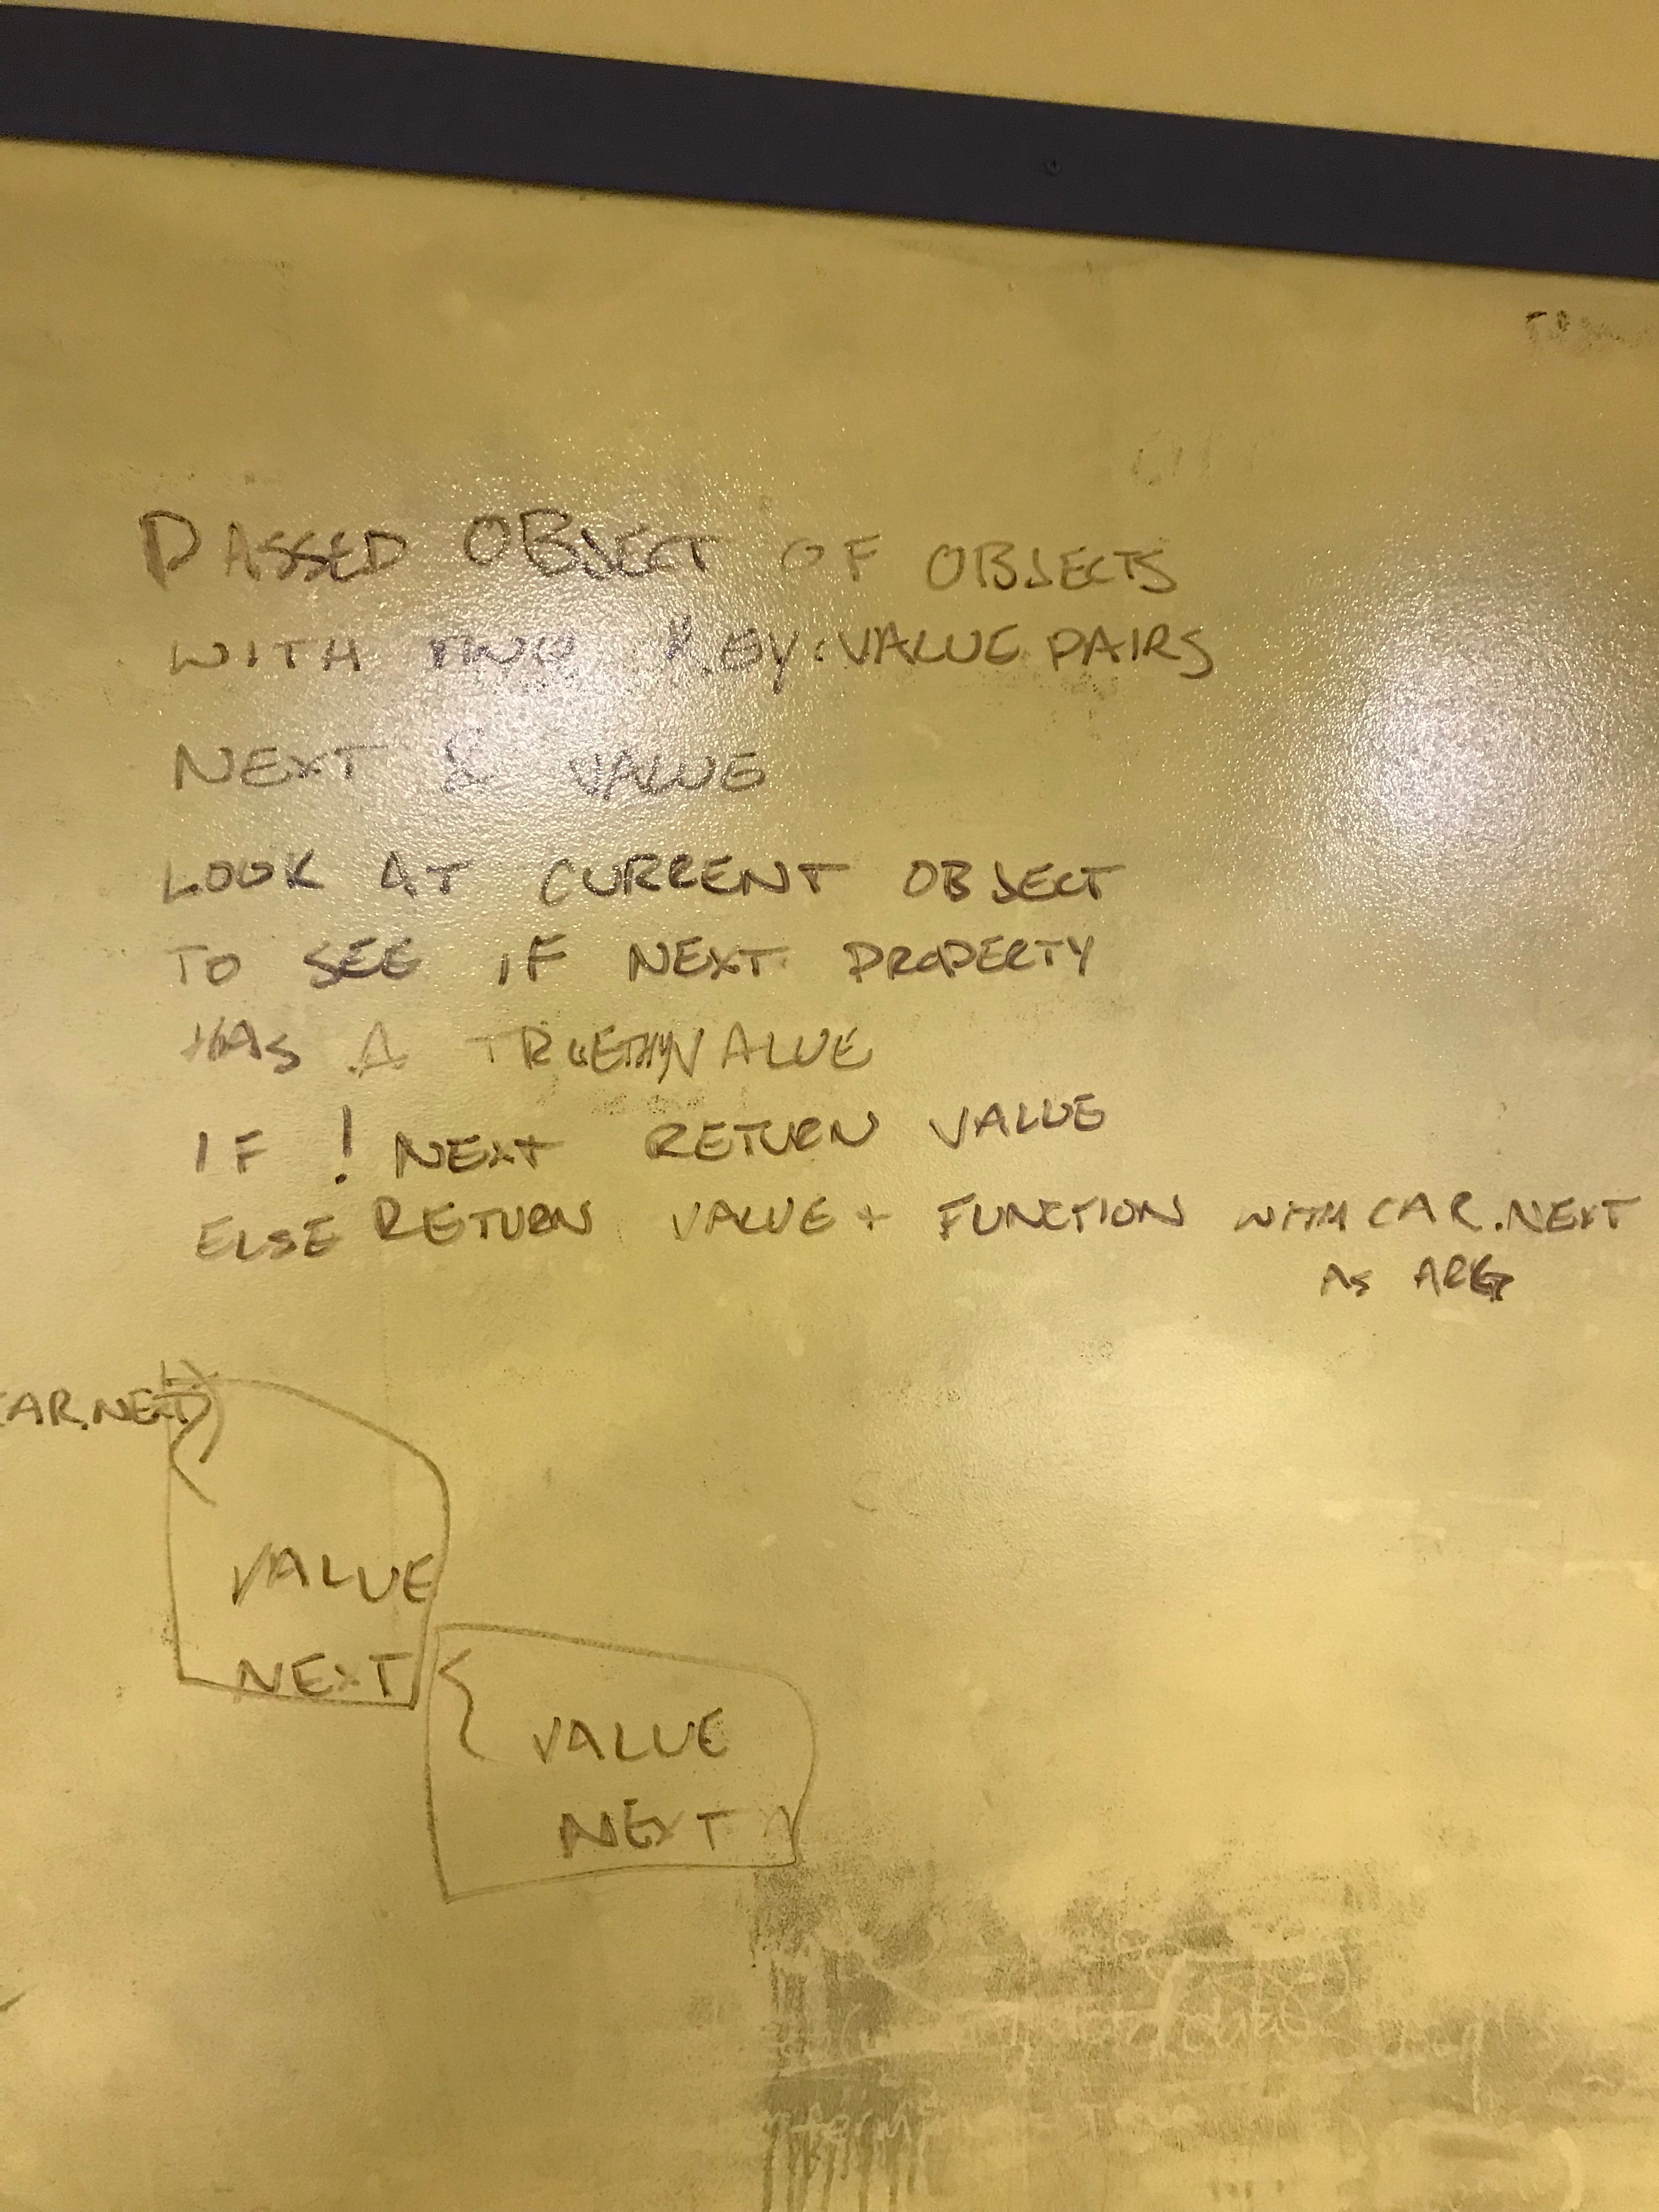 PASSED OBJECT OF OBJECTS
WITH TWO KEY:VALUE PAIRS
NEXT & VALUE
LOOK AT CURRENT OBJECT
TO SEE IF NEXT PROPERTY
HAS A TRUETHYVALUE
IF ! NEXT RETURN VALUE
ELSE RETURN VALUE + FUNCTION WITH CAR.NEXT
AS ARG
CAR.NEXT
VALUE
NEXT
{ VALUE
NEXT